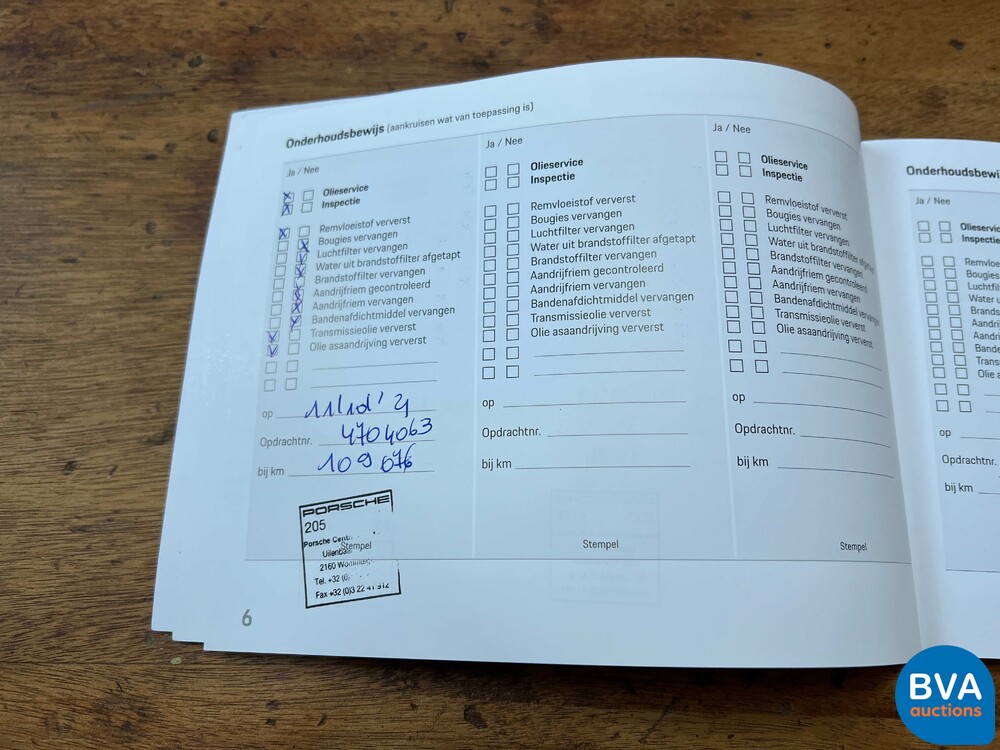 Onderhoudsbewijs (aankruisen wat van toepassing is)
Ja / Nee
Olieservice
Inspectie
Remvloeistof ververst
Bougies vervangen
Luchtfilter vervangen
Water uit brandstoffilter afgetapt
Brandstoffilter vervangen
Aandrijfriem gecontroleerd
Aandrijfriem vervangen
Bandenafdichtmiddel vervangen
Transmissieolie ververst
Olie asaandrijving ververst
op
Opdrachtnr. 4704063
bij km 109 076
PORSCHE
205
Porsche
2160
Tel. +32
Fax +32 (0)3 22
Stempel
6
Ja / Nee
Olieservice
Inspectie
Remvloeistof ververst
Bougies vervangen
Luchtfilter vervangen
Water uit brandstoffilter afgetapt
Brandstoffilter vervangen
Aandrijfriem gecontroleerd
Aandrijfriem vervangen
Bandenafdichtmiddel vervangen
Transmissieolie ververst
Olie asaandrijving ververst
op
Opdrachtnr.
bij km
Stempel
Ja / Nee
Olieservice
Inspectie
Remvloeistof ververst
Bougies vervangen
Luchtfilter vervangen
Water uit brandstoffilter afgetapt
Brandstoffilter vervangen
Aandrijfriem gecontroleerd
Aandrijfriem vervangen
Bandenafdichtmiddel vervangen
Transmissieolie ververst
Olie asaandrijving ververst
op
Opdrachtnr.
bij km
Stempel
Onderhoudsbewij
Ja / Nee
Olieservic
Inspectie
Remvloe
Bougies
Luchtfil
Water u
Brands
Aandri
Aandri
Bande
Trans
Olie a
op
Opdrachtnr.
bij km
BVA
auctions